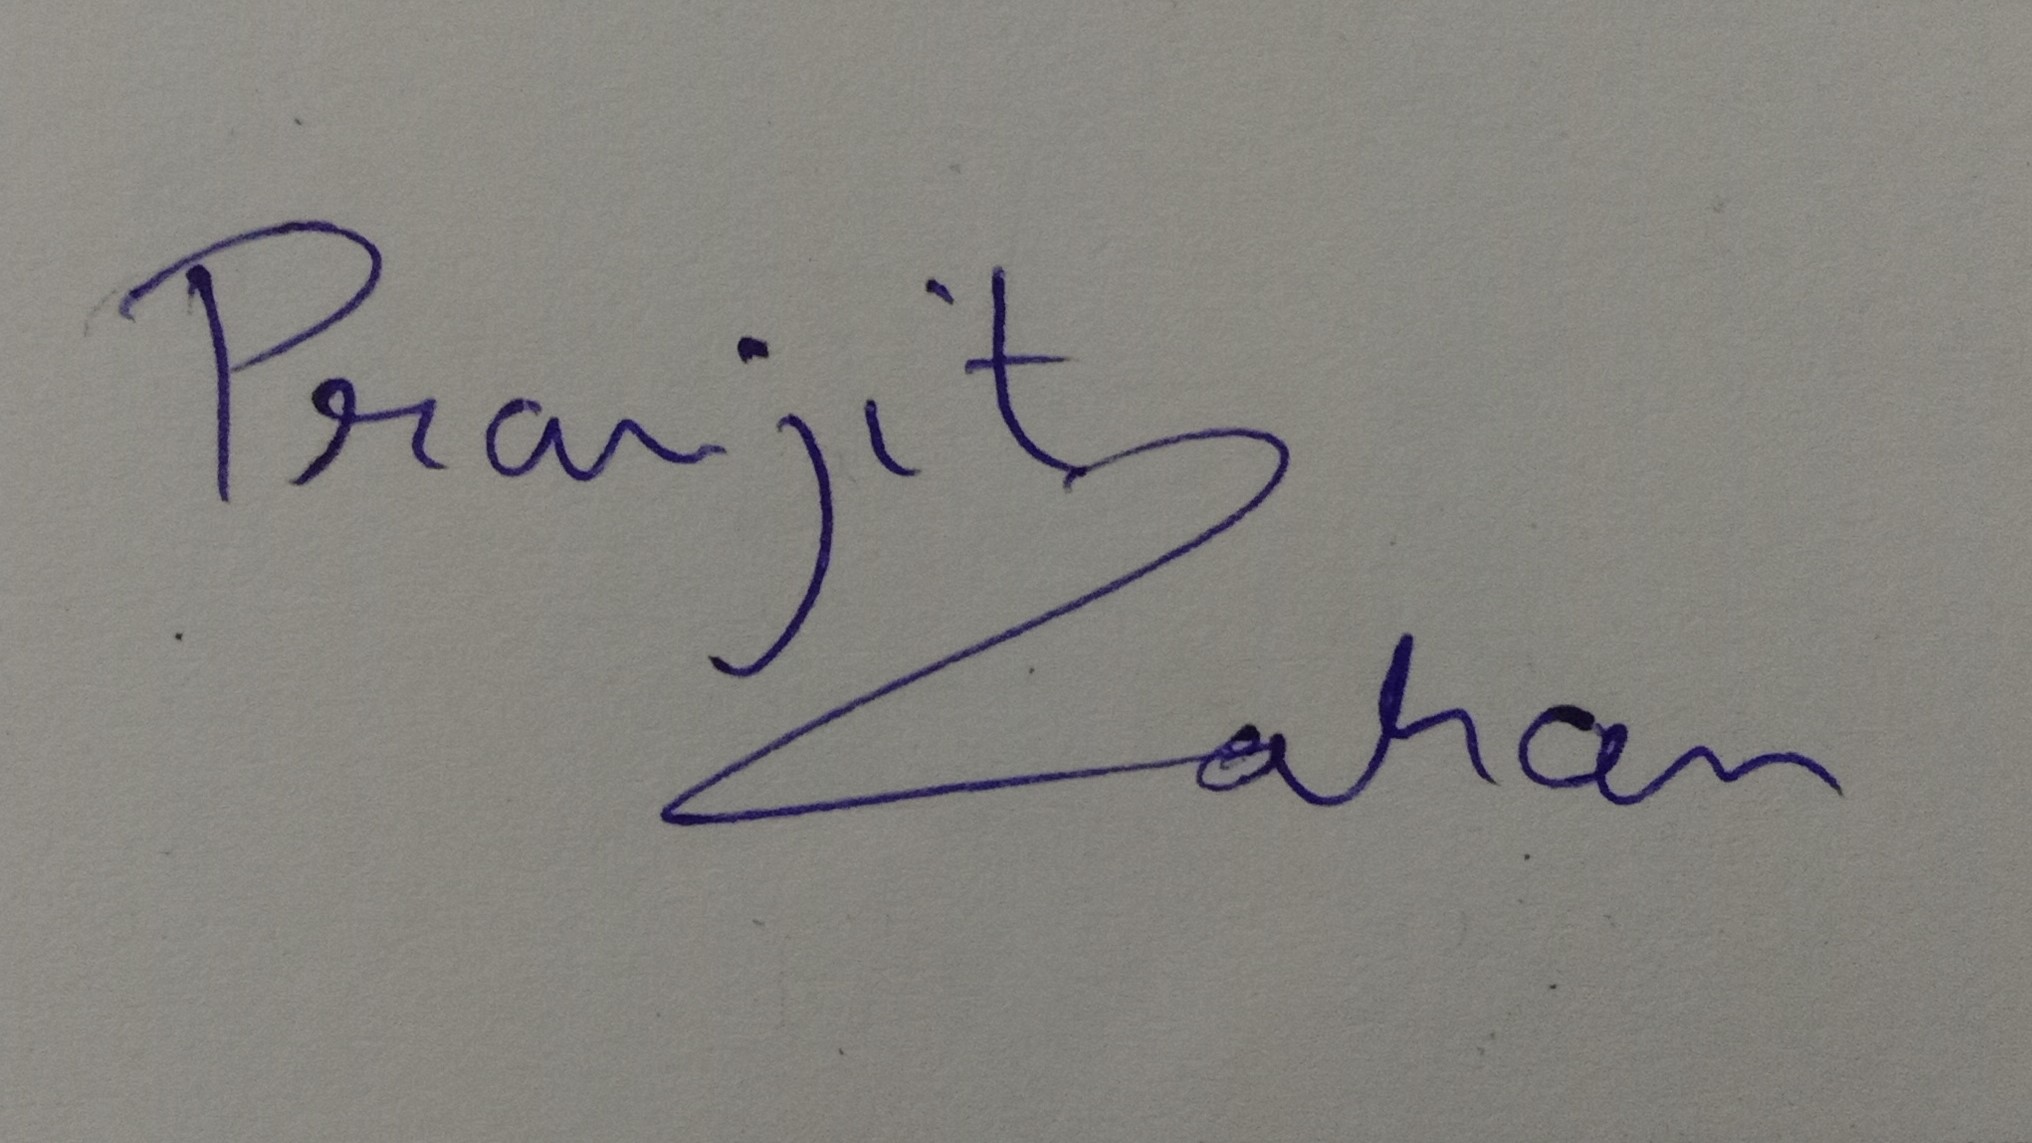 Pranjit
Zahan